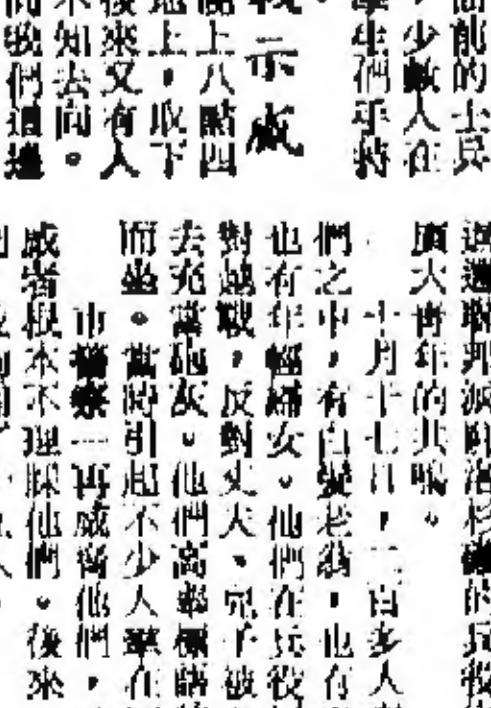 前的士兵
，少數人在
學生們手持
戰示威
晚上八點四
地上，取下
後來又有人
不知去向。
而我們這邊
廣大青年的共鳴。
十月十七日，二百多人
們之中，有白髮老翁，也有
也有年輕婦女。他們在兵役
對越戰，反對丈夫、兒子被
去充當砲灰。他們高舉標語
而坐。當時引起不少人羣在
市警察一再威脅他們，
威者根本不理睬他們。後來